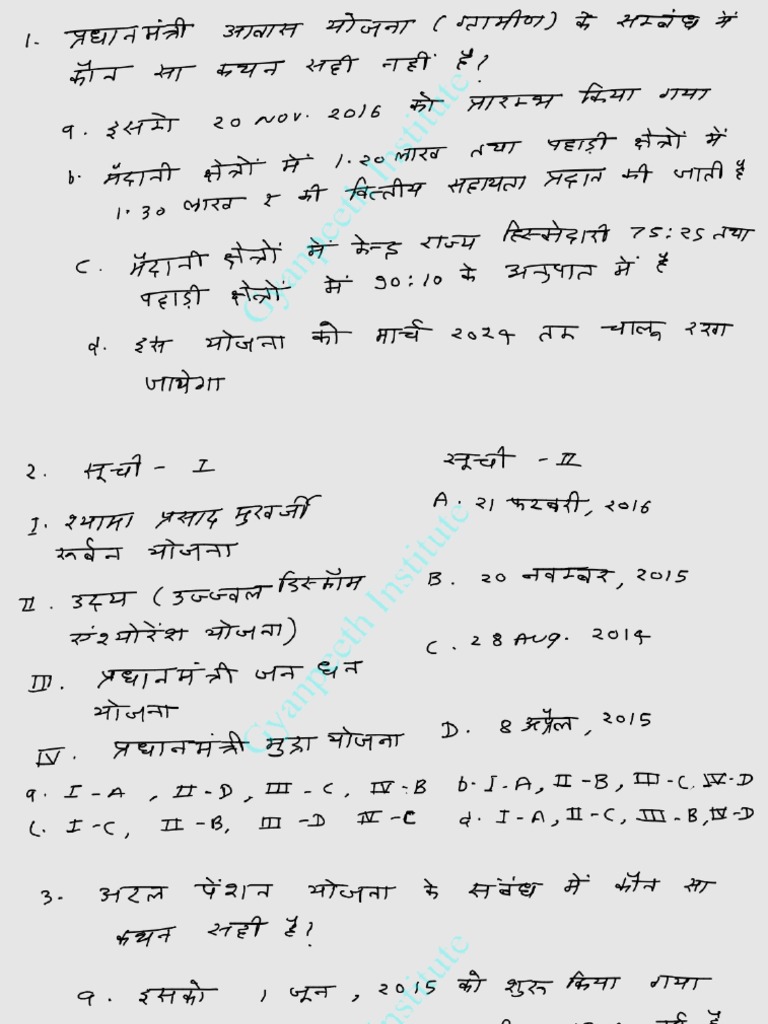 1. प्रधानमंत्री आवास योजना (ग्रामीण) के सम्बंध में
कौन सा कथन सही नहीं है?
a. इसको 20 Nov. 2016 को प्रारम्भ किया गया
b. मैदानी क्षेत्रों में 1.20 लाख तथा पहाड़ी क्षेत्रों में
1.30 लाख ₹ की वित्तीय सहायता प्रदान की जाती है
c. मैदानी क्षेत्रों में केन्द्र राज्य हिस्सेदारी 75:25 तथा
पहाड़ी क्षेत्रों में 90:10 के अनुपात में है
d. इस योजना को मार्च 2024 तक चालू रखा
जायेगा
2. सूची - I सूची - II
I. श्यामा प्रसाद मुखर्जी A. 21 फरवरी, 2016
रूर्बन योजना
II. उदय (उज्ज्वल डिस्कॉम B. 20 नवम्बर, 2015
एंश्योरेंश योजना) C. 28 Aug. 2014
III. प्रधानमंत्री जन धन
योजना
IV. प्रधानमंत्री मुद्रा योजना D. 8 अप्रैल, 2015
a. I-A, II-D, III-C, IV-B b. I-A, II-B, III-C, IV-D
c. I-C, II-B, III-D IV-C d. I-A, II-C, III-B, IV-D
3. अटल पेंशन योजना के संबंध में कौन सा
कथन सही है?
a. इसको 1 जून, 2015 को शुरू किया गया
Gyanpeeth Institute
Gyanpeeth Institute